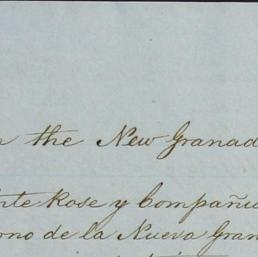 the New Granad
nte Rose y Compañia
rno de la Nueva Gran